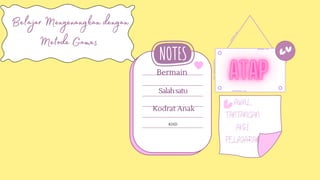 Belajar Menyenangkan dengan
Metode Games
NOTES
Bermain
Salah satu
Kodrat Anak
ATAP
AWAL
TANTANGAN
AKSI
PELAJARAN